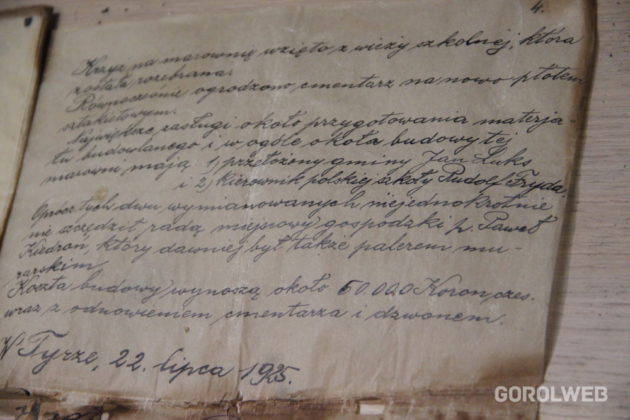 4.
Krzyż na marownię wzięto z wieży szkolnej, która
została rozebrana.
Równocześnie ogrodzono cmentarz na nowo płotem
sztakietowym.
Największe zasługi około przygotowania materja-
łu budowlanego i w ogóle około budowy tej
marowni mają 1, przełożony gminy Jan Łuks
i 2, kierownik polskiej szkoły Rudolf Fryda.
Oprócz tych dwu wymianowanych niejednokrotnie
nie szczędził radą miejsowy gospodzki p. Paweł
Kiedroń, który dawniej był także palerem mu-
rarskim.
Koszta budowy wynoszą około 60.000 Koron czes.
wraz z odnowieniem cmentarza i dzwonem.
W Tyrze, 22. lipca 1925.
GOROLWEB